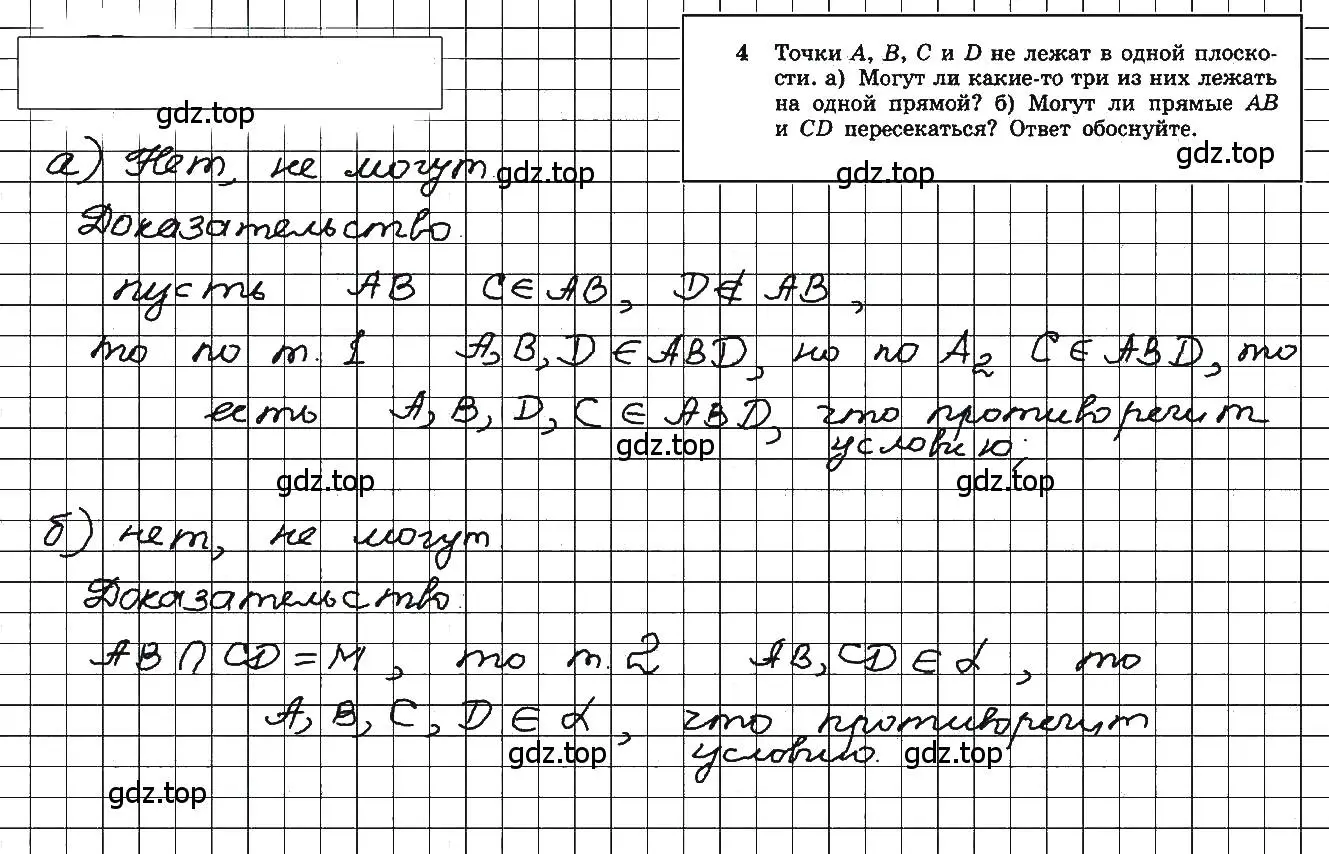 4 Точки A, B, C и D не лежат в одной плоско-
сти. а) Могут ли какие-то три из них лежать
на одной прямой? б) Могут ли прямые AB
и CD пересекаться? Ответ обоснуйте.
gdz.top
gdz.top
а) Нет, не могут gdz.top
gdz.top
Доказательство.
пусть AB C∈AB, D∉AB,
то по т. 1 A, B, D ∈ ABD, но по A2 C∈ABD, то
есть A, B, D, C ∈ ABD, что противоречит
условию;
gdz.top
gdz.top
gdz.top
б) нет, не могут
Доказательство.
AB∩CD=M, то т. 2 AB, CD∈α, то
A, B, C, D∈α, что противоречит
условию.
gdz.top
gdz.top
gdz.top